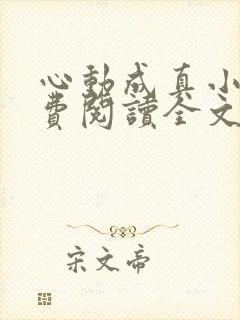 心動成真小
費閱讀全文
宋文帝